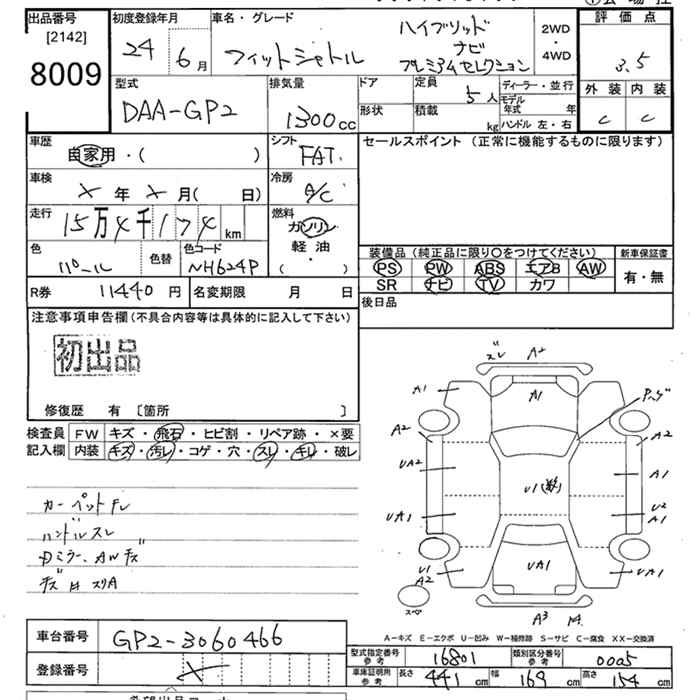 出品番号
[2142]
8009
初度登録年月
24 6月
車名・グレード
フィットシャトル
ハイブリッド
ナビ
プレミアムセレクション
2WD
・
4WD
評価点
3.5
外装 内装
C C
型式
DAA-GP2
排気量
1300cc
ドア
形状
定員
5人
積載
kg
ディーラー・並行
モデル年式 年
ハンドル 左・右
車歴
自家用・( )
シフト
FAT
セールスポイント (正常に機能するものに限ります)
車検
× 年 × 月( 日)
冷房
A/C
走行
15万4千174 km
燃料
ガソリン
軽油
( ・ )
色
パール
色替
色コード
NH624P
装備品 (純正品に限り○をつけてください)
PS PW ABS エアB AW
SR ナビ TV カワ
新車保証書
有・無
R券 11440円
名変期限 月 日
後日品
注意事項申告欄 (不具合内容等は具体的に記入して下さい)
初出品
修復歴 有 [箇所 ]
検査員
記入欄
FW キズ・飛石・ヒビ割・リペア跡・×要
内装 キズ・汚レ・コゲ・穴・スレ・キレ・破レ
カーペットヤレ
ハンドルスレ
ズレ A2
A1 A1
A2 A2
UA2 A1
UA1 U1 U2
A1
U1
A2 UA1 UA1
スペア
A3
A-キズ E-エクボ U-凹み W-補修跡 S-サビ C-腐食 XX-交換済
車台番号 GP2-3060466
登録番号 ×
型式指定番号
参考
16801
類別区分番号
参考
0005
車庫証明用
参考
長さ 441 cm 幅 169 cm 高さ 154 cm